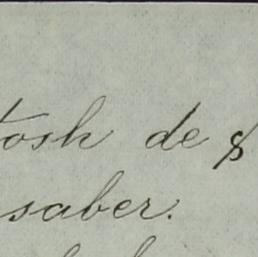 tosh de $
saber.